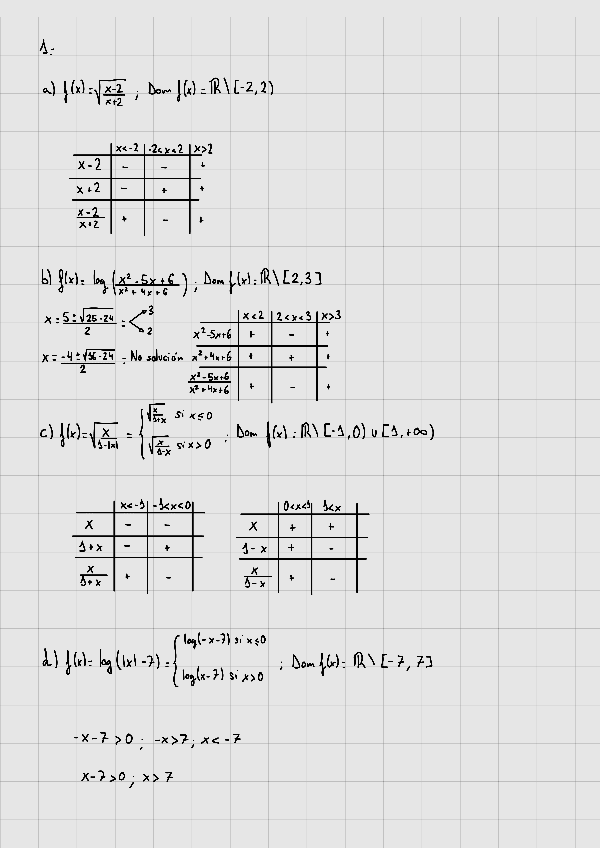 1.-
a) f(x)=√((x-2)/(x+2)) ; Dom f(x) = ℝ \ [-2,2)
x<-2 | -2<x<2 | x>2
x-2 | - | - | +
x+2 | - | + | +
(x-2)/(x+2) | + | - | +
b) f(x)= log ((x²-5x+6)/(x²+4x+6)) ; Dom f(x): ℝ \ [2,3]
x = (5 ± √(25-24))/2 = 3
2
x = (-4 ± √(16-24))/2 = No solución
x<2 | 2<x<3 | x>3
x²-5x+6 | + | - | +
x²+4x+6 | + | + | +
(x²-5x+6)/(x²+4x+6) | + | - | +
c) f(x)=√(x/(1-|x|)) = { √(x/(1+x)) si x≤0
√(x/(1-x)) si x>0 ; Dom f(x): ℝ \ [-1,0) ∪ [1,+∞)
x<-1 | -1<x<0
x | - | -
1+x | - | +
x/(1+x) | + | -
0<x<1 | 1<x
x | + | +
1-x | + | -
x/(1-x) | + | -
d) f(x)= log (|x|-7) = { log(-x-7) si x≤0
log(x-7) si x>0 ; Dom f(x)= ℝ \ [-7, 7]
-x-7>0 ; -x>7; x<-7
x-7>0 ; x>7